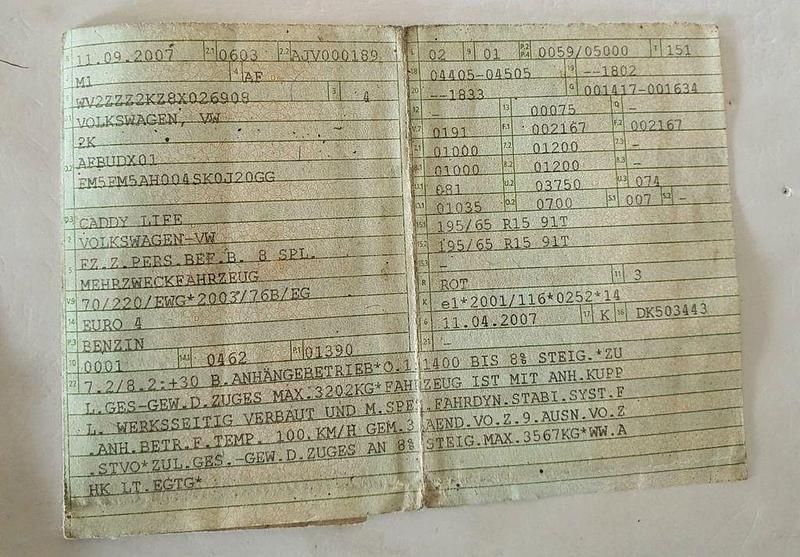 11.09.2007 2.1 0603 2.2 AJV000189
M1 4 AF
WV2ZZZ2KZ8X026908 3 4
VOLKSWAGEN, VW
2K
AFBUDX01
FM5FM5AH004SK0J20GG
D.3 CADDY LIFE
2 VOLKSWAGEN-VW
5 FZ.Z.PERS.BEF.B. 8 SPL.
MEHRZWECKFAHRZEUG
V.9 70/220/EWG*2003/76B/EG
14 EURO 4
P.3 BENZIN
10 0001 14.1 0462 P.1 01390
L 02 9 01 P.2 P.4 0059/05000 T 151
18 04405-04505 19 --1802
20 --1833 G 001417-001634
12 - 13 00075 Q -
V.7 0191 F.1 002167 F.2 002167
7.1 01000 7.2 01200 7.3 -
8.1 01000 8.2 01200 8.3 -
U.1 081 U.2 03750 U.3 074
O.1 01035 O.2 0700 S.1 007 S.2 -
15.1 195/65 R15 91T
15.2 195/65 R15 91T
15.3 -
R ROT 11 3
K e1*2001/116*0252*14
6 11.04.2007 17 K 16 DK503443
21 -
22 7.2/8.2:+30 B.ANHÄNGEBETRIEB*O.1:1400 BIS 8% STEIG.*ZU
L.GES-GEW.D.ZUGES MAX.3202KG*FAHRZEUG IST MIT ANH.KUPP
L. WERKSSEITIG VERBAUT UND M.SPEZ.FAHRDYN.STABI.SYST.F
.ANH.BETR.F.TEMP. 100.KM/H GEM.3.AEND.VO.Z.9.AUSN.VO.Z
.STVO*ZUL.GES.-GEW.D.ZUGES AN 8% STEIG.MAX.3567KG*WW.A
HK LT.EGTG*